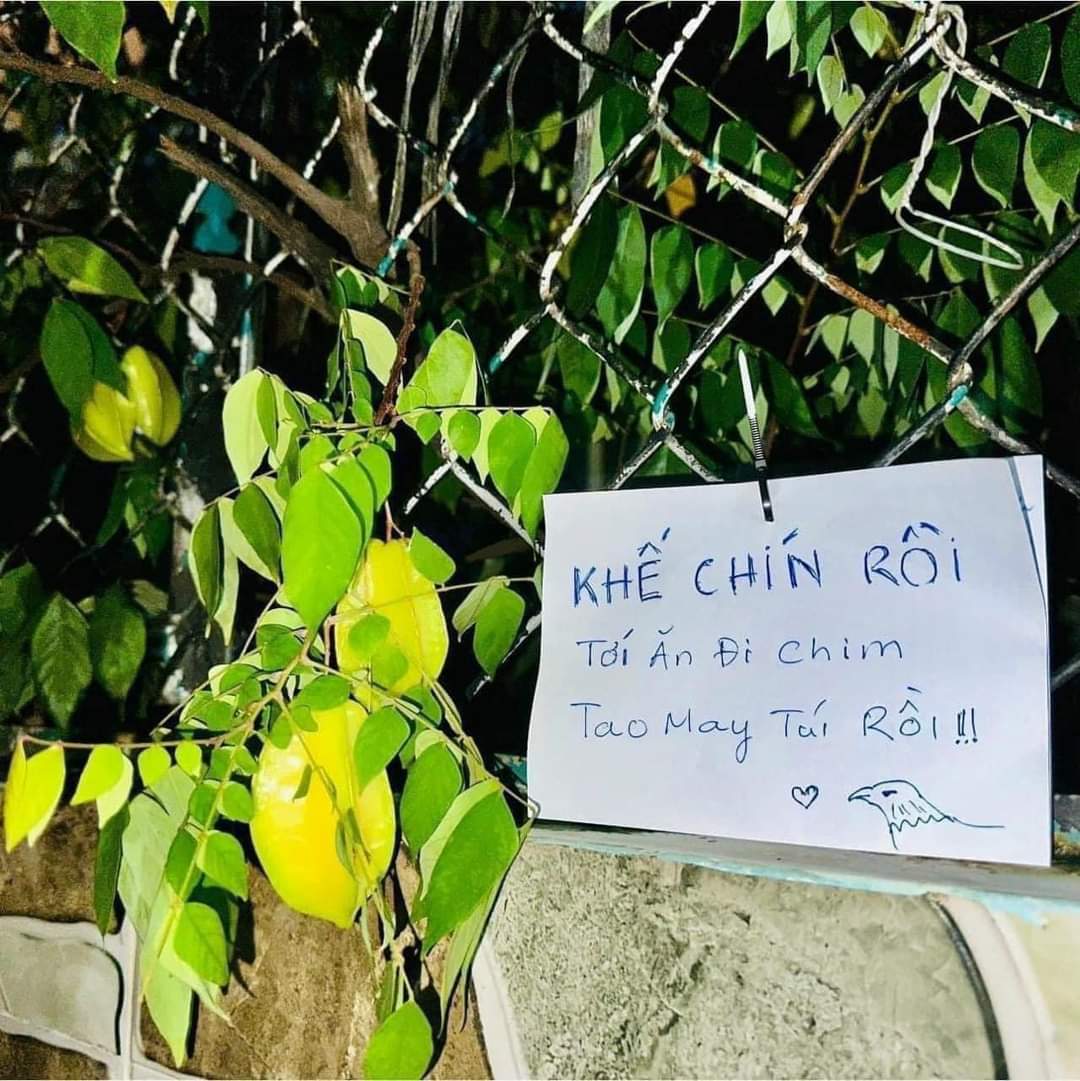 KHẾ CHÍN RỒi
Tới Ăn Đi Chim
Tao May Túi RỒi!!!